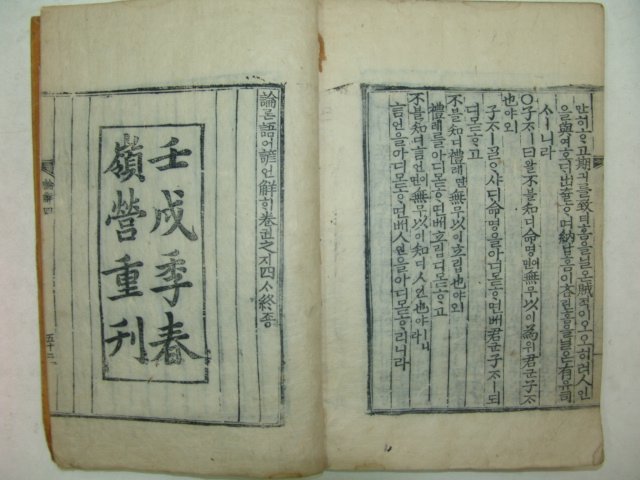 만히ᄒᆞ고期긔를致티홈을닐온賊적이오오히려人인
을與여호ᄃᆡ出츌ᄒᆞ며納납홈이吝린홈을닐온有유司
ᄉᆞㅣ니라
○子ᄌᆞㅣ曰왈不블知디命명이면無무以이爲위君군子ᄌᆞ
也야ㅣ오
子ᄌᆞㅣᄀᆞᆯᄋᆞ샤ᄃᆡ命명을아디몯ᄒᆞ면ᄡᅥ君군子ᄌᆞㅣ되
디몯ᄒᆞ고
不블知디禮례면無무以이立립也야ㅣ오
禮례를아디몯ᄒᆞ면ᄡᅥ立립디몯ᄒᆞ고
不블知디言언이면無무以이知디人인也야ㅣ니라
言언을아디몯ᄒᆞ면ᄡᅥ人인을아디몯ᄒᆞᄂᆞ니라
論론語어諺언解ᄒᆡ卷권之지四ᄉᆞ終죵
壬戌季春
嶺營重刊
五十二